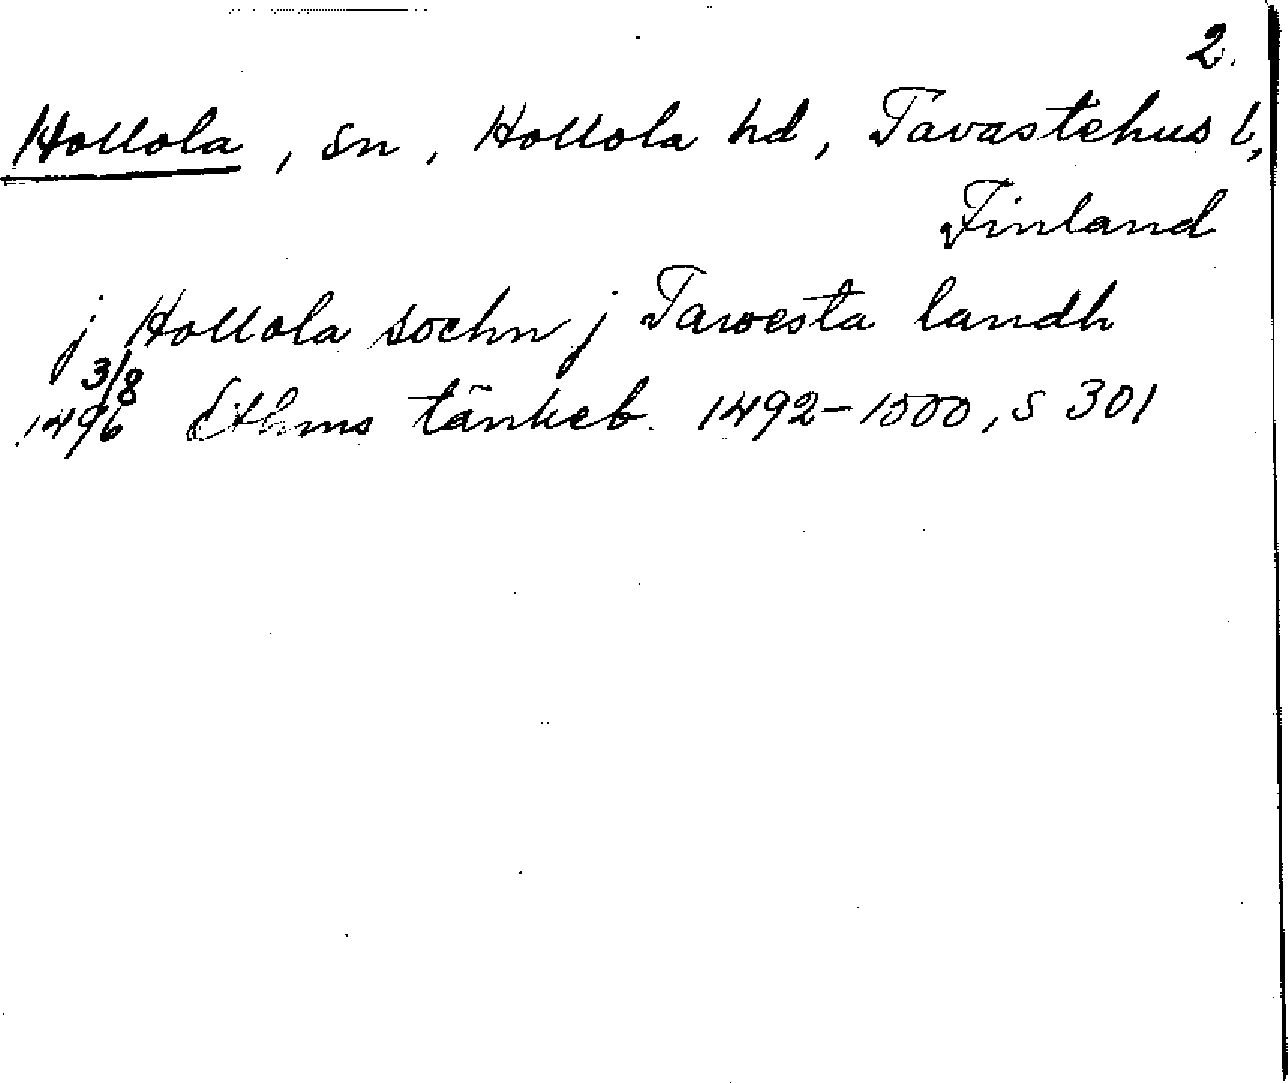 2.
Hollola, sn, Hollola hd, Tavastehus l,
Finland
j Hollola sochn j Tawesta landh
3/8
1496 Sthms tänkeb. 1492-1500, s 301